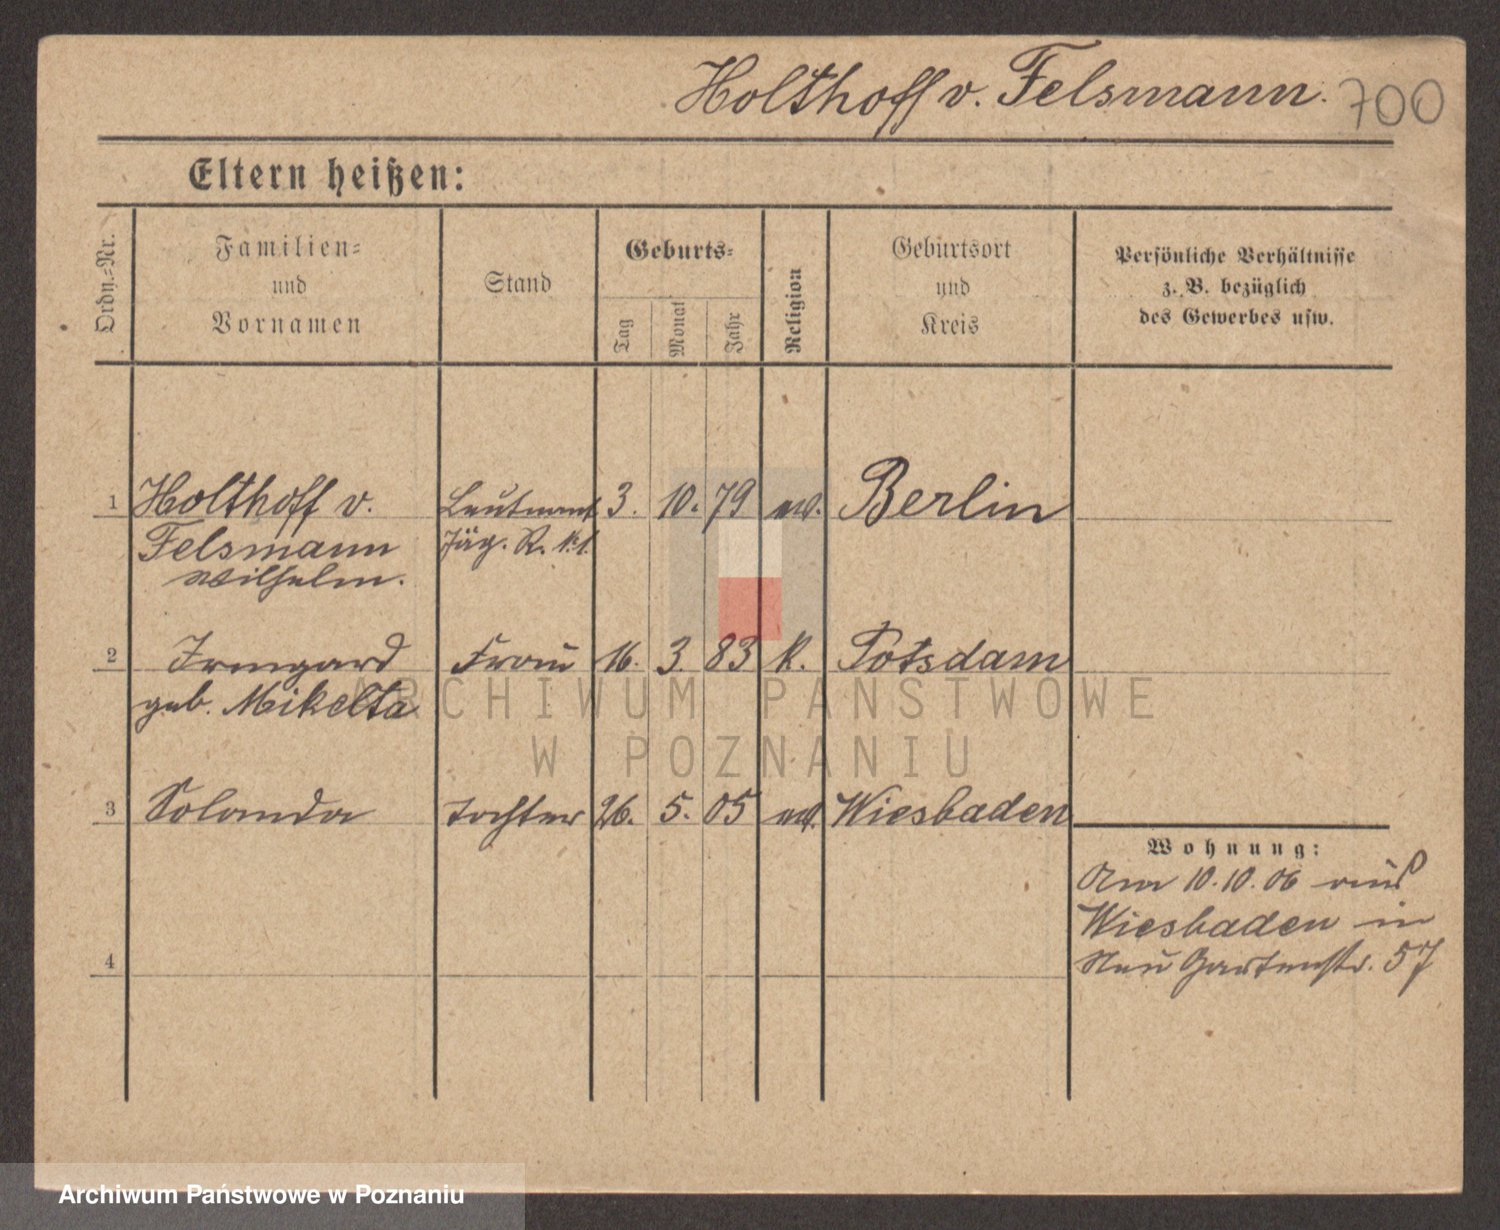 Holthoff v. Felsmann.
700
Eltern heißen:
Ordn.-Nr.
Familien-
und
Vornamen
Stand
Geburts-
Tag
Monat
Jahr
Religion
Geburtsort
und
Kreis
Persönliche Verhältnisse
z. B. bezüglich
des Gewerbes usw.
1 Holthoff v. Leutnant 3. 10. 79 ev. Berlin
Felsmann Jäg. R.
Wilhelm.
2 Irmgard Frau 16. 3. 83 k. Potsdam
geb. Mikelta
3 Solanda Tochter 26. 5. 05 ev. Wiesbaden
Wohnung:
Am 10.10.06 aus
Wiesbaden in
Neu Gartenstr. 57
4
ARCHIWUM PAŃSTWOWE
W POZNANIU
Archiwum Państwowe w Poznaniu